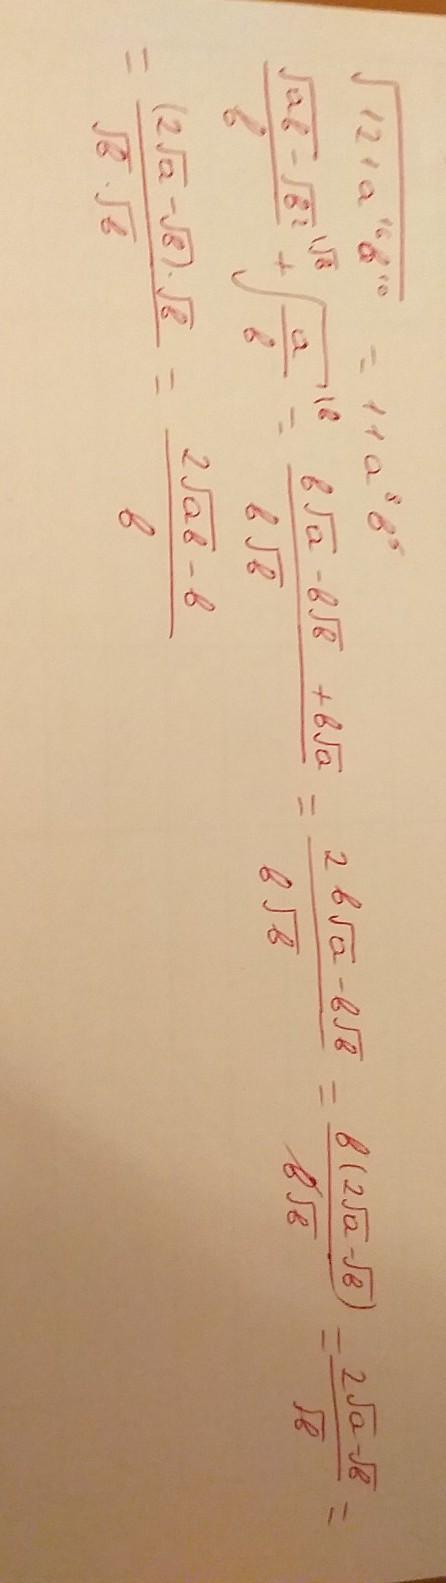 √121a¹⁶b¹⁰ = 11a⁸b⁵
(√ab - √b²)/b \√b + √(a/b) \b = (b√a - b√b + b√a)/(b√b) = (2b√a - b√b)/(b√b) = b(2√a - √b)/(b√b) = (2√a - √b)/√b =
= ((2√a - √b)·√b)/(√b·√b) = (2√ab - b)/b